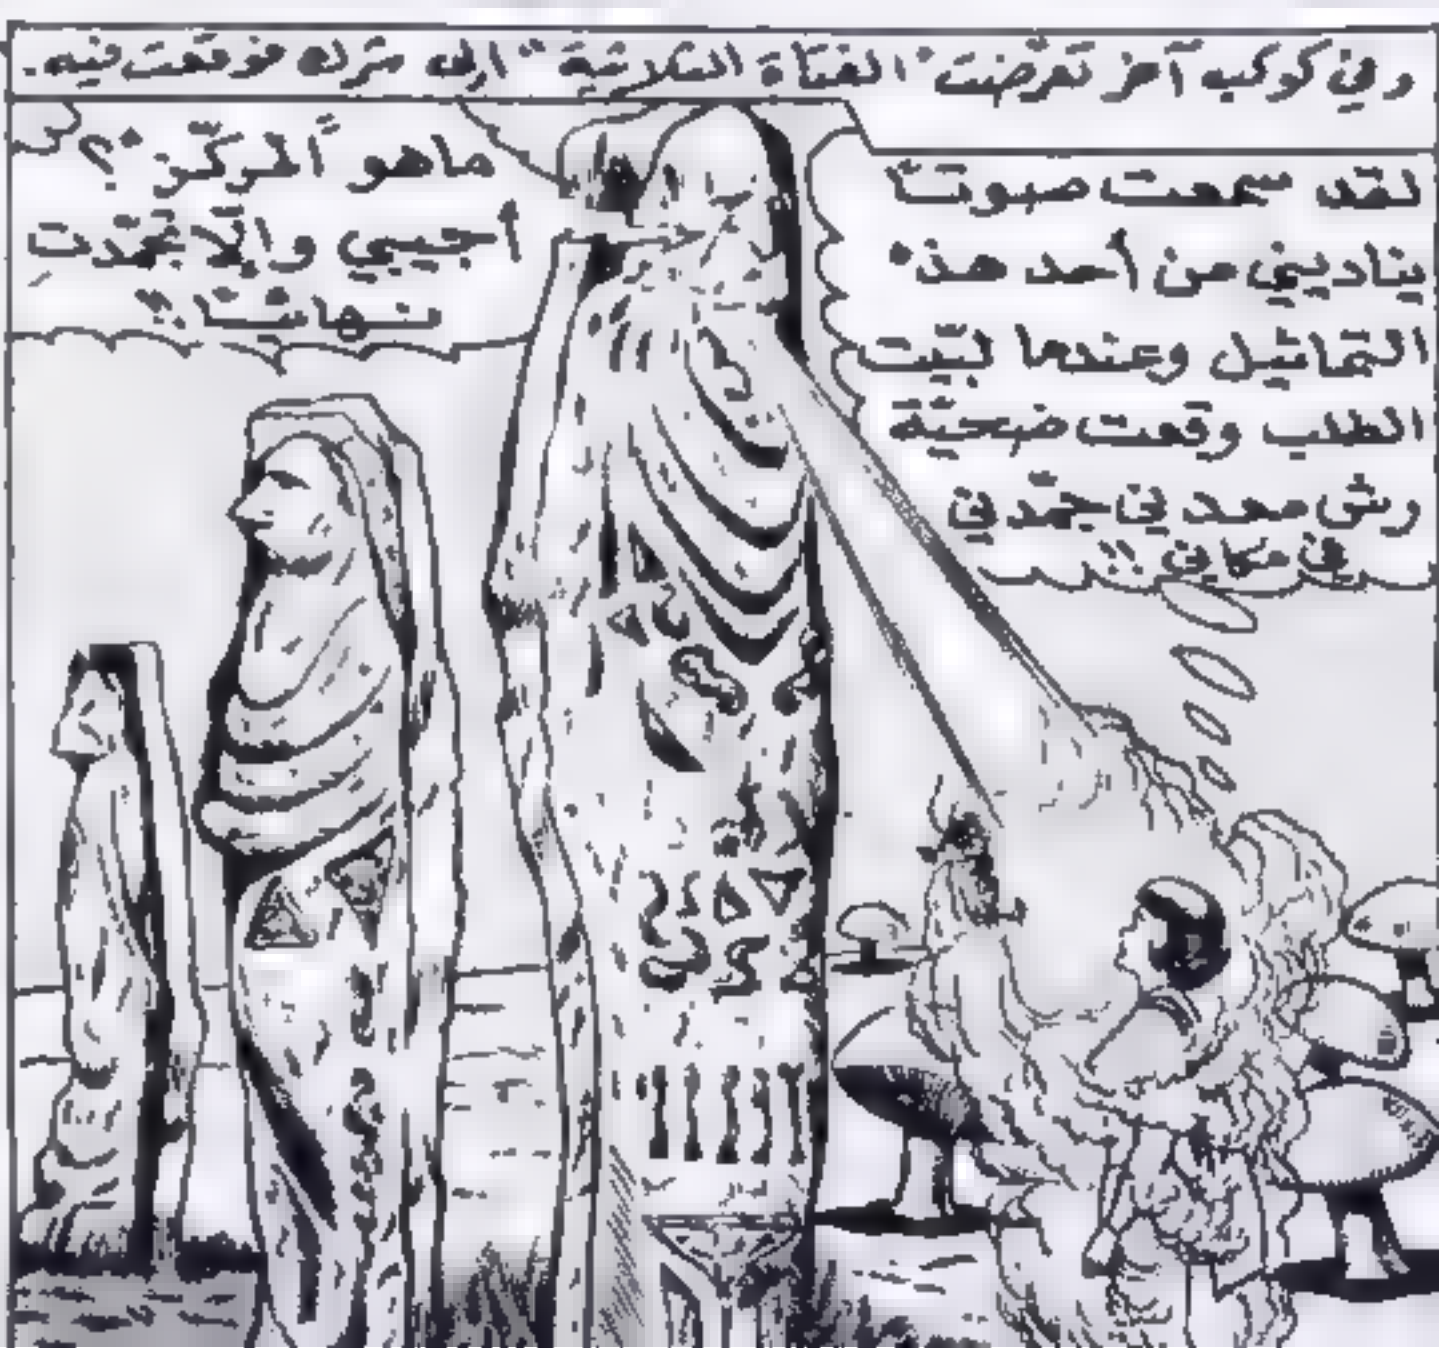 وفي كوكب آخر تعرّضت "الفتاة الثلاثية" إلى شرك فوقعت فيه.
لقد سمعت صوتاً
يناديني من أحد هذه
التماثيل وعندما لبّيت
الطلب وقعت ضحيّة
وش معدني جمّدني
في مكاني !!
ما هو المركّز ؟
أجيبي وإلّا تجمّدتِ
نهائياً !!